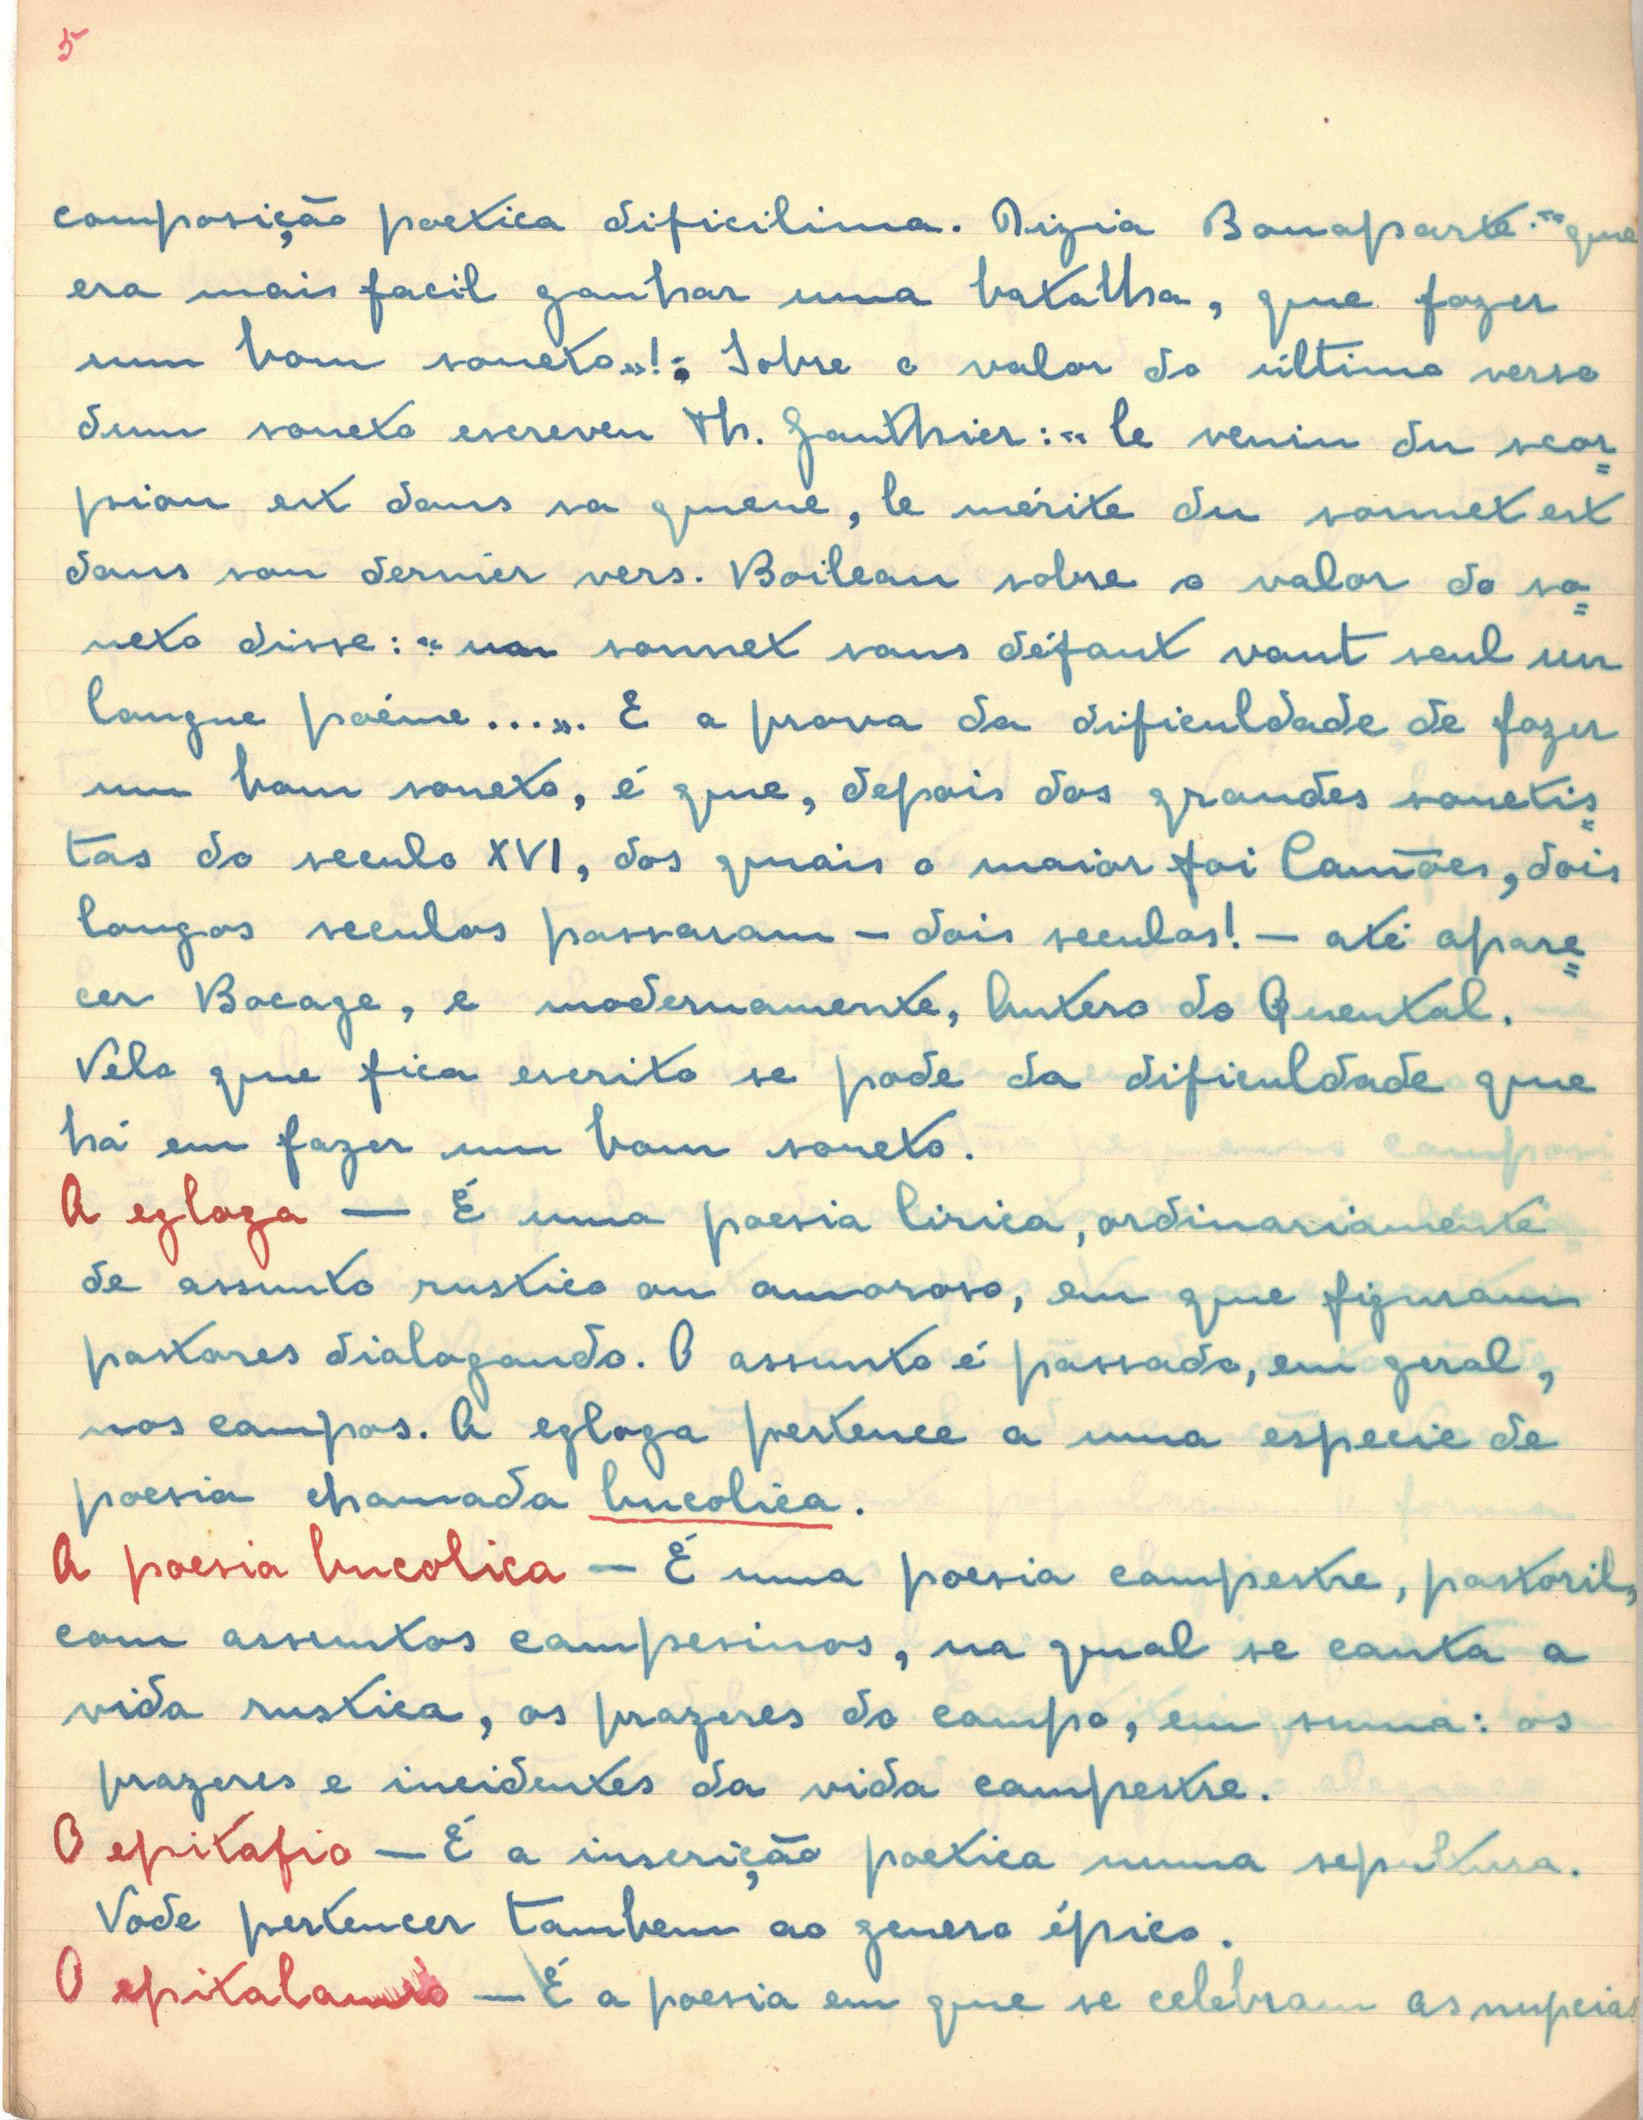 5
composição poetica dificilima. Dizia Bonaparte: «que
era mais facil ganhar uma batalha, que fazer
um bom soneto»!; Sobre o valor do último verso
dum soneto escreveu Th. Gauthier: « le venin du scor=
pion est dans sa queue, le mérite du sonnet est
dans son dernier vers. Boileau sobre o valor do so=
neto disse: « un sonnet sans défaut vaut seul un
longue poéme...». E a prova da dificuldade de fazer
um bom soneto, é que, depois dos grandes sonetis=
tas do seculo XVI, dos quais o maior foi Camões, dois
longos seculos passaram — dois seculos! — até apare=
cer Bocage, e modernamente, Antero do Quental.
Pelo que fica escrito se pode da dificuldade que
há em fazer um bom soneto.
A egloga — É uma poesia lirica, ordinariamente
de assunto rustico ou amoroso, em que figuram
pastores dialogando. O assunto é passado, em geral,
nos campos. A egloga pertence a uma especie de
poesia chamada bucolica.
A poesia bucolica — É uma poesia campestre, pastoril,
com assuntos campesinos, na qual se canta a
vida rustica, os prazeres do campo, em suma: os
prazeres e incidentes da vida campestre.
O epitafio — É a inscrição poetica numa sepultura.
Pode pertencer tambem ao genero épico.
O epitalamio — É a poesia em que se celebram as nupcias